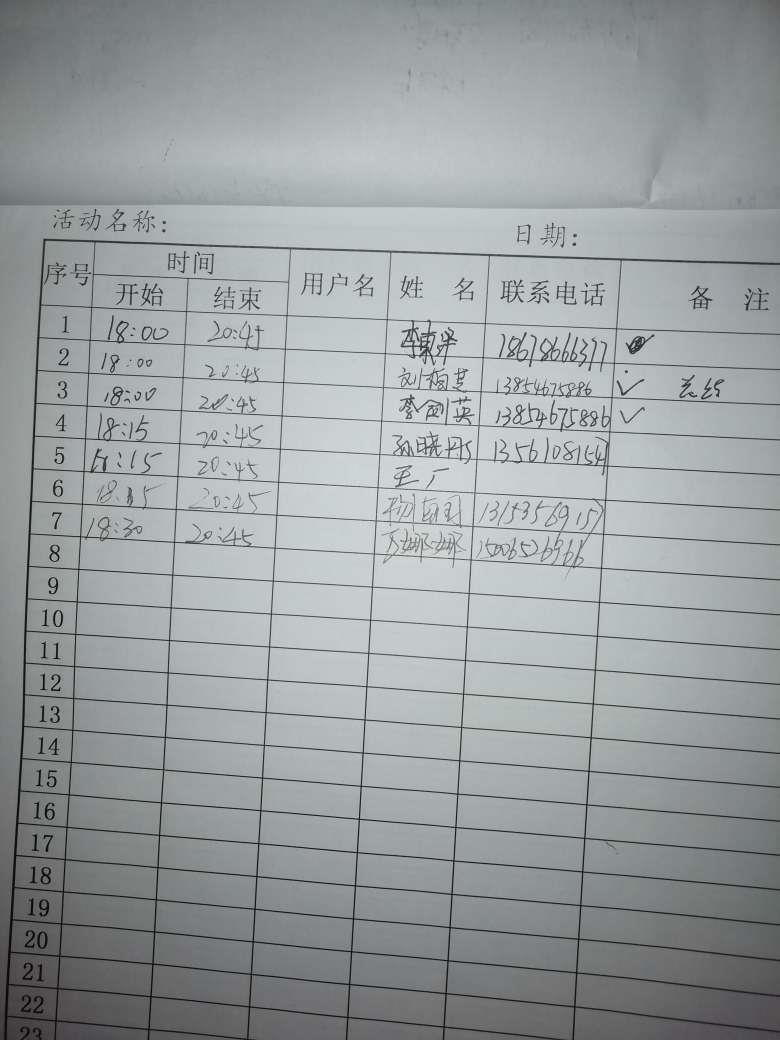 活动名称： 日期：
序号 时间 用户名 姓 名 联系电话 备 注
开始 结束
1 18:00 20:45 18678666377
2 18:00 20:45 13854675886 ✓
3 18:00 20:45 李剑英 13854675886 ✓
4 18:15 20:45 孙晓丹 1356108154
5 18:15 20:45 王广
6 18:15 20:45 13153569157
7 18:30 20:45 娜娜 15006526966
8
9
10
11
12
13
14
15
16
17
18
19
20
21
22
23